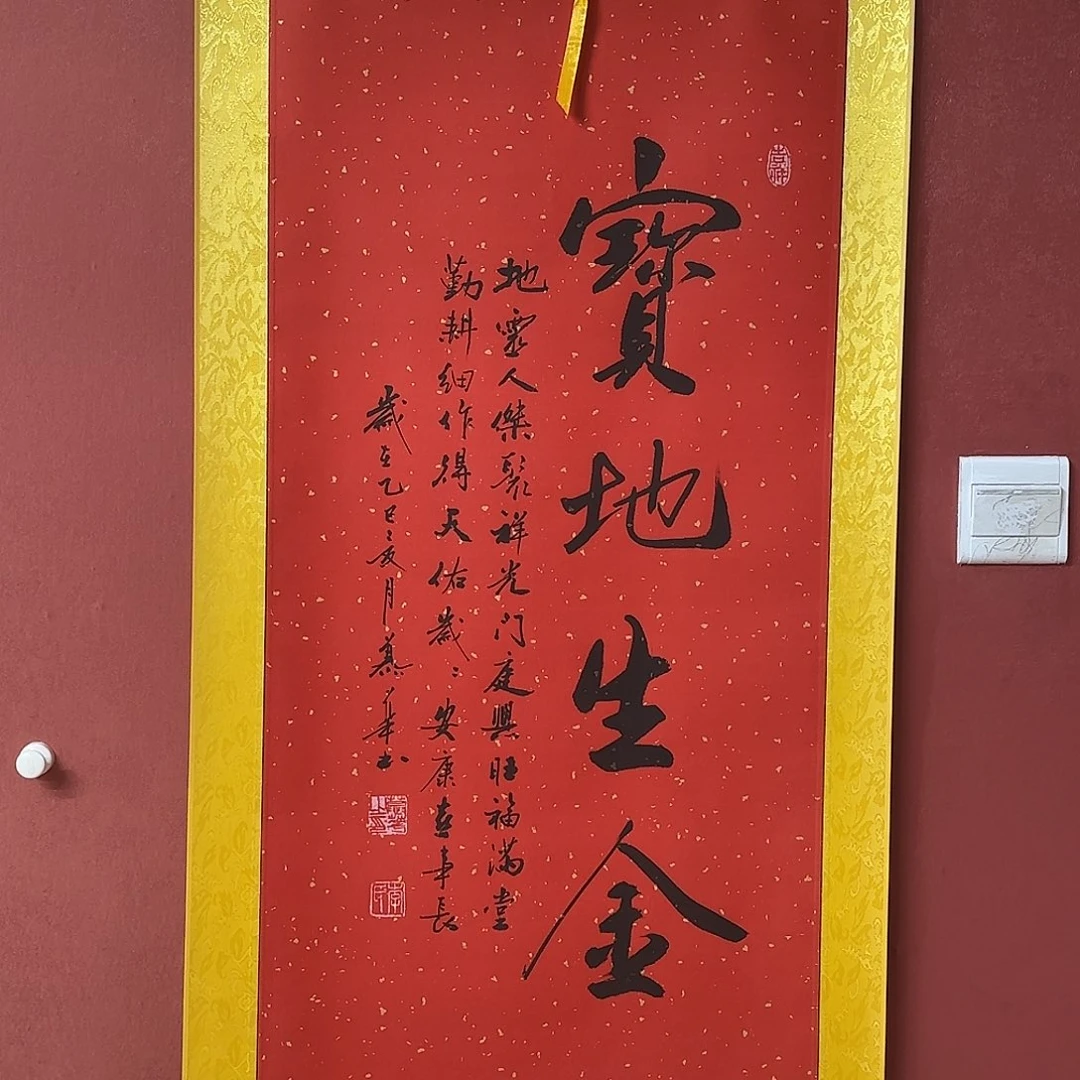 吉祥
寶地生金
地靈人傑聚祥光门庭興旺福满堂
勤耕细作得天佑歲々安康喜事長
歲在乙巳之夏月
书